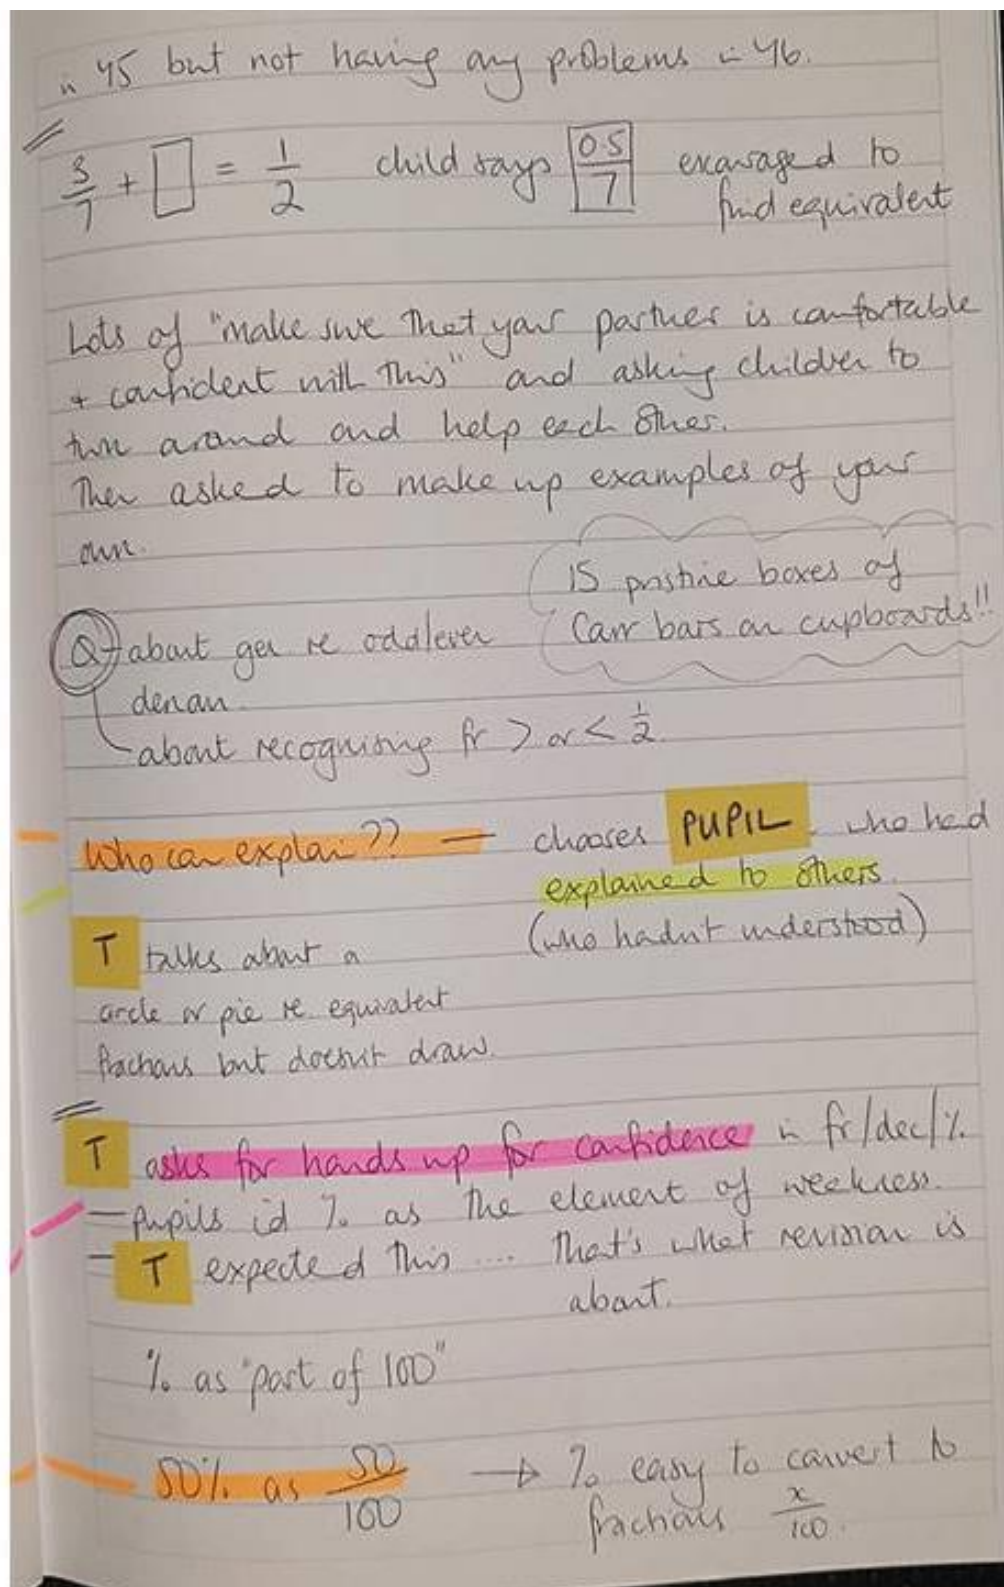 in Y5 but not having any problems in Y6.
3/7 + □ = 1/2 child says 0.5/7 encouraged to
find equivalent
Lots of "make sure that your partner is comfortable
+ confident with this" and asking children to
turn around and help each other.
Then asked to make up examples of your
own.
15 pristine boxes of
Q about gen re odd/even Cam bars on cupboards!!
denom.
about recognising fr > or < 1/2
Who can explain?? — chooses PUPIL who had
explained to others.
T talks about a (who hadn't understood)
circle or pie re equivalent
fractions but doesn't draw.
T asks for hands up for confidence in fr/dec/%
— pupils id % as the element of weakness.
— T expected this .... that's what revision is
about.
% as "part of 100"
50% as 50/100 → % easy to convert to
fractions x/100.